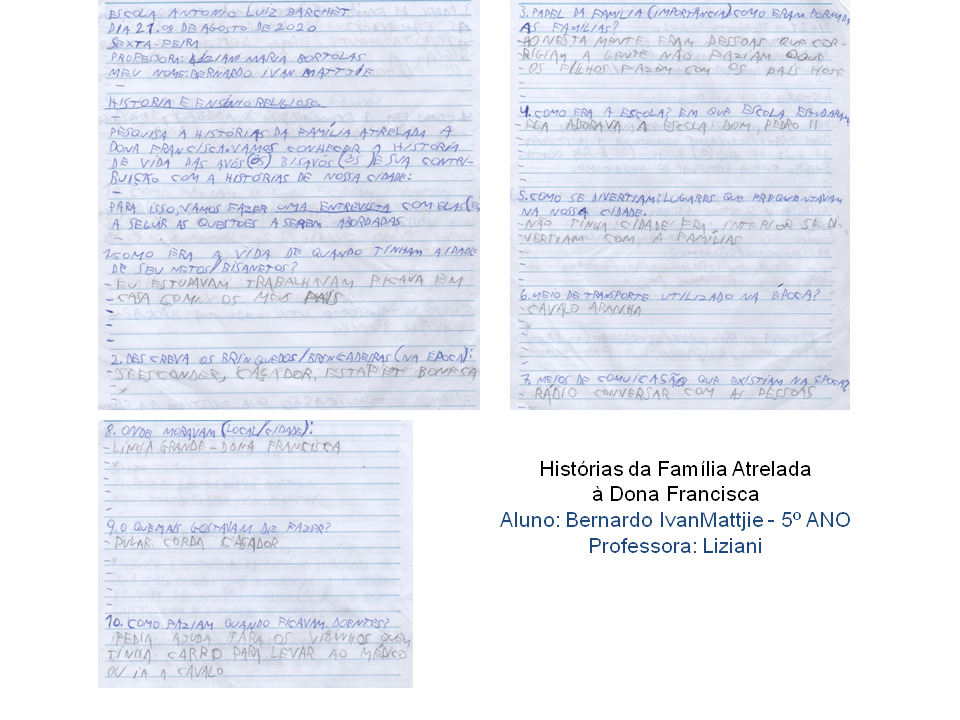 ESCOLA ANTONIO LUIZ BARCHET
DIA 21.08 DE AGOSTO DE 2020
SEXTA-FEIRA
PROFESSORA: LIZIANI MARIA BORTOLAS
MEU NOME: BERNARDO IVAN MATTJIE
HISTORIA E ENSINO RELIGIOSO.
PESQUISA A HISTÓRIAS DA FAMÍLIA ATRELADA A
DONA FRANCISCA. VAMOS CONHECER A HISTORIA
DE VIDA DAS AVÓS (ÔS) BISAVÓS (ÔS) E SUA CONTRI-
BUIÇÃO COM A HISTÓRIAS DE NOSSA CIDADE:
PARA ISSO, VAMOS FAZER UMA ENTREVISTA COM ELAS (ES)
A SEGUIR AS QUESTOES A SEREM ABORDADAS
1. COMO ERA A VIDA DE QUANDO TINHAM A IDADE
DE SEU NETOS/BISANETOS?
- EU ESTUDAVAM TRABALHAVAM FICAVA EM
- CASA COM OS MEUS PAIS
2. DESCREVA OS BRINQUEDOS/BRINCADEIRAS (NA ÉPOCA):
- SE ESCONDER, CAÇADOR, ESTAFET BONECA
3. PAPEL DA FAMÍLIA (IMPORTÂNCIA) COMO ERAM FORMADA
AS FAMÍLIAS?
- HONESTA MENTE ERAM PESSOAS QUE COR-
RIGIAM A GENTE NÃO FAZIAM QUE
- OS FILHOS FAZEM COM OS PAÍS HOJE
4. COMO ERA A ESCOLA? EM QUE ESCOLA ESTUDARAM
- ELA ADORAVA, A ESCOLA DOM PEDRO II
5. COMO SE DIVERTIAM? LUGARES QUE FREQUENTAVAM
NA NOSSA CIDADE.
- NÃO TINHA CIDADE ERA INTERIOR SE DI-
VERTIAM COM A FAMÍLIAS
6. MEIO DE TRANSPORTE UTILIZADO NA ÉPOCA?
- CAVALO ARANHA
7. MEIOS DE COMUICAÇÃO QUE EXISTIAM NA ÉPOCA?
- RÁDIO CONVERSAR COM AS PESSOAS
8. ONDE MORAVAM (LOCAL/CIDADE):
- LINHA GRANDE - DONA FRANCISCA
9. O QUE MAIS GOSTAVAM DE FAZER?
- PULAR CORDA CAÇADOR
10. COMO FAZIAM QUANDO FICAVAM DOENTES?
PEDIA AJUDA PARA OS VIZINHOS QUEM
TINHA CARRO PARA LEVAR AO MÉDICO
OU IA A CAVALO
Histórias da Família Atrelada
à Dona Francisca
Aluno: Bernardo IvanMattjie - 5º ANO
Professora: Liziani